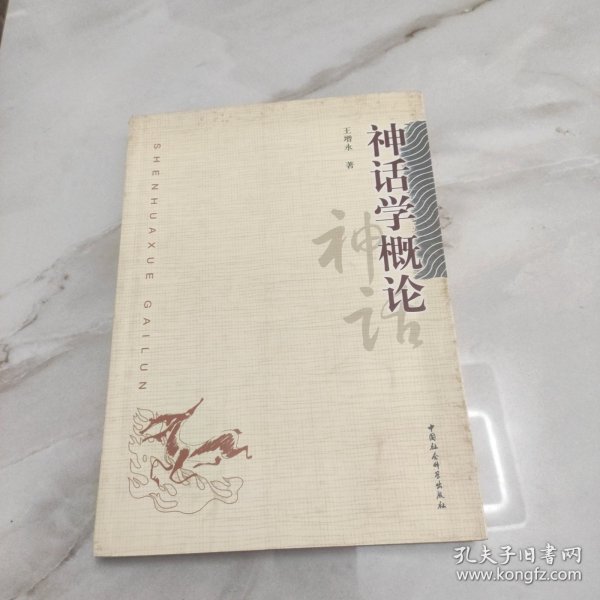 神话学概论
王增永 著
神话
SHENHUAXUE GAILUN
中国社会科学出版社
孔夫子旧书网
www.kongfz.com